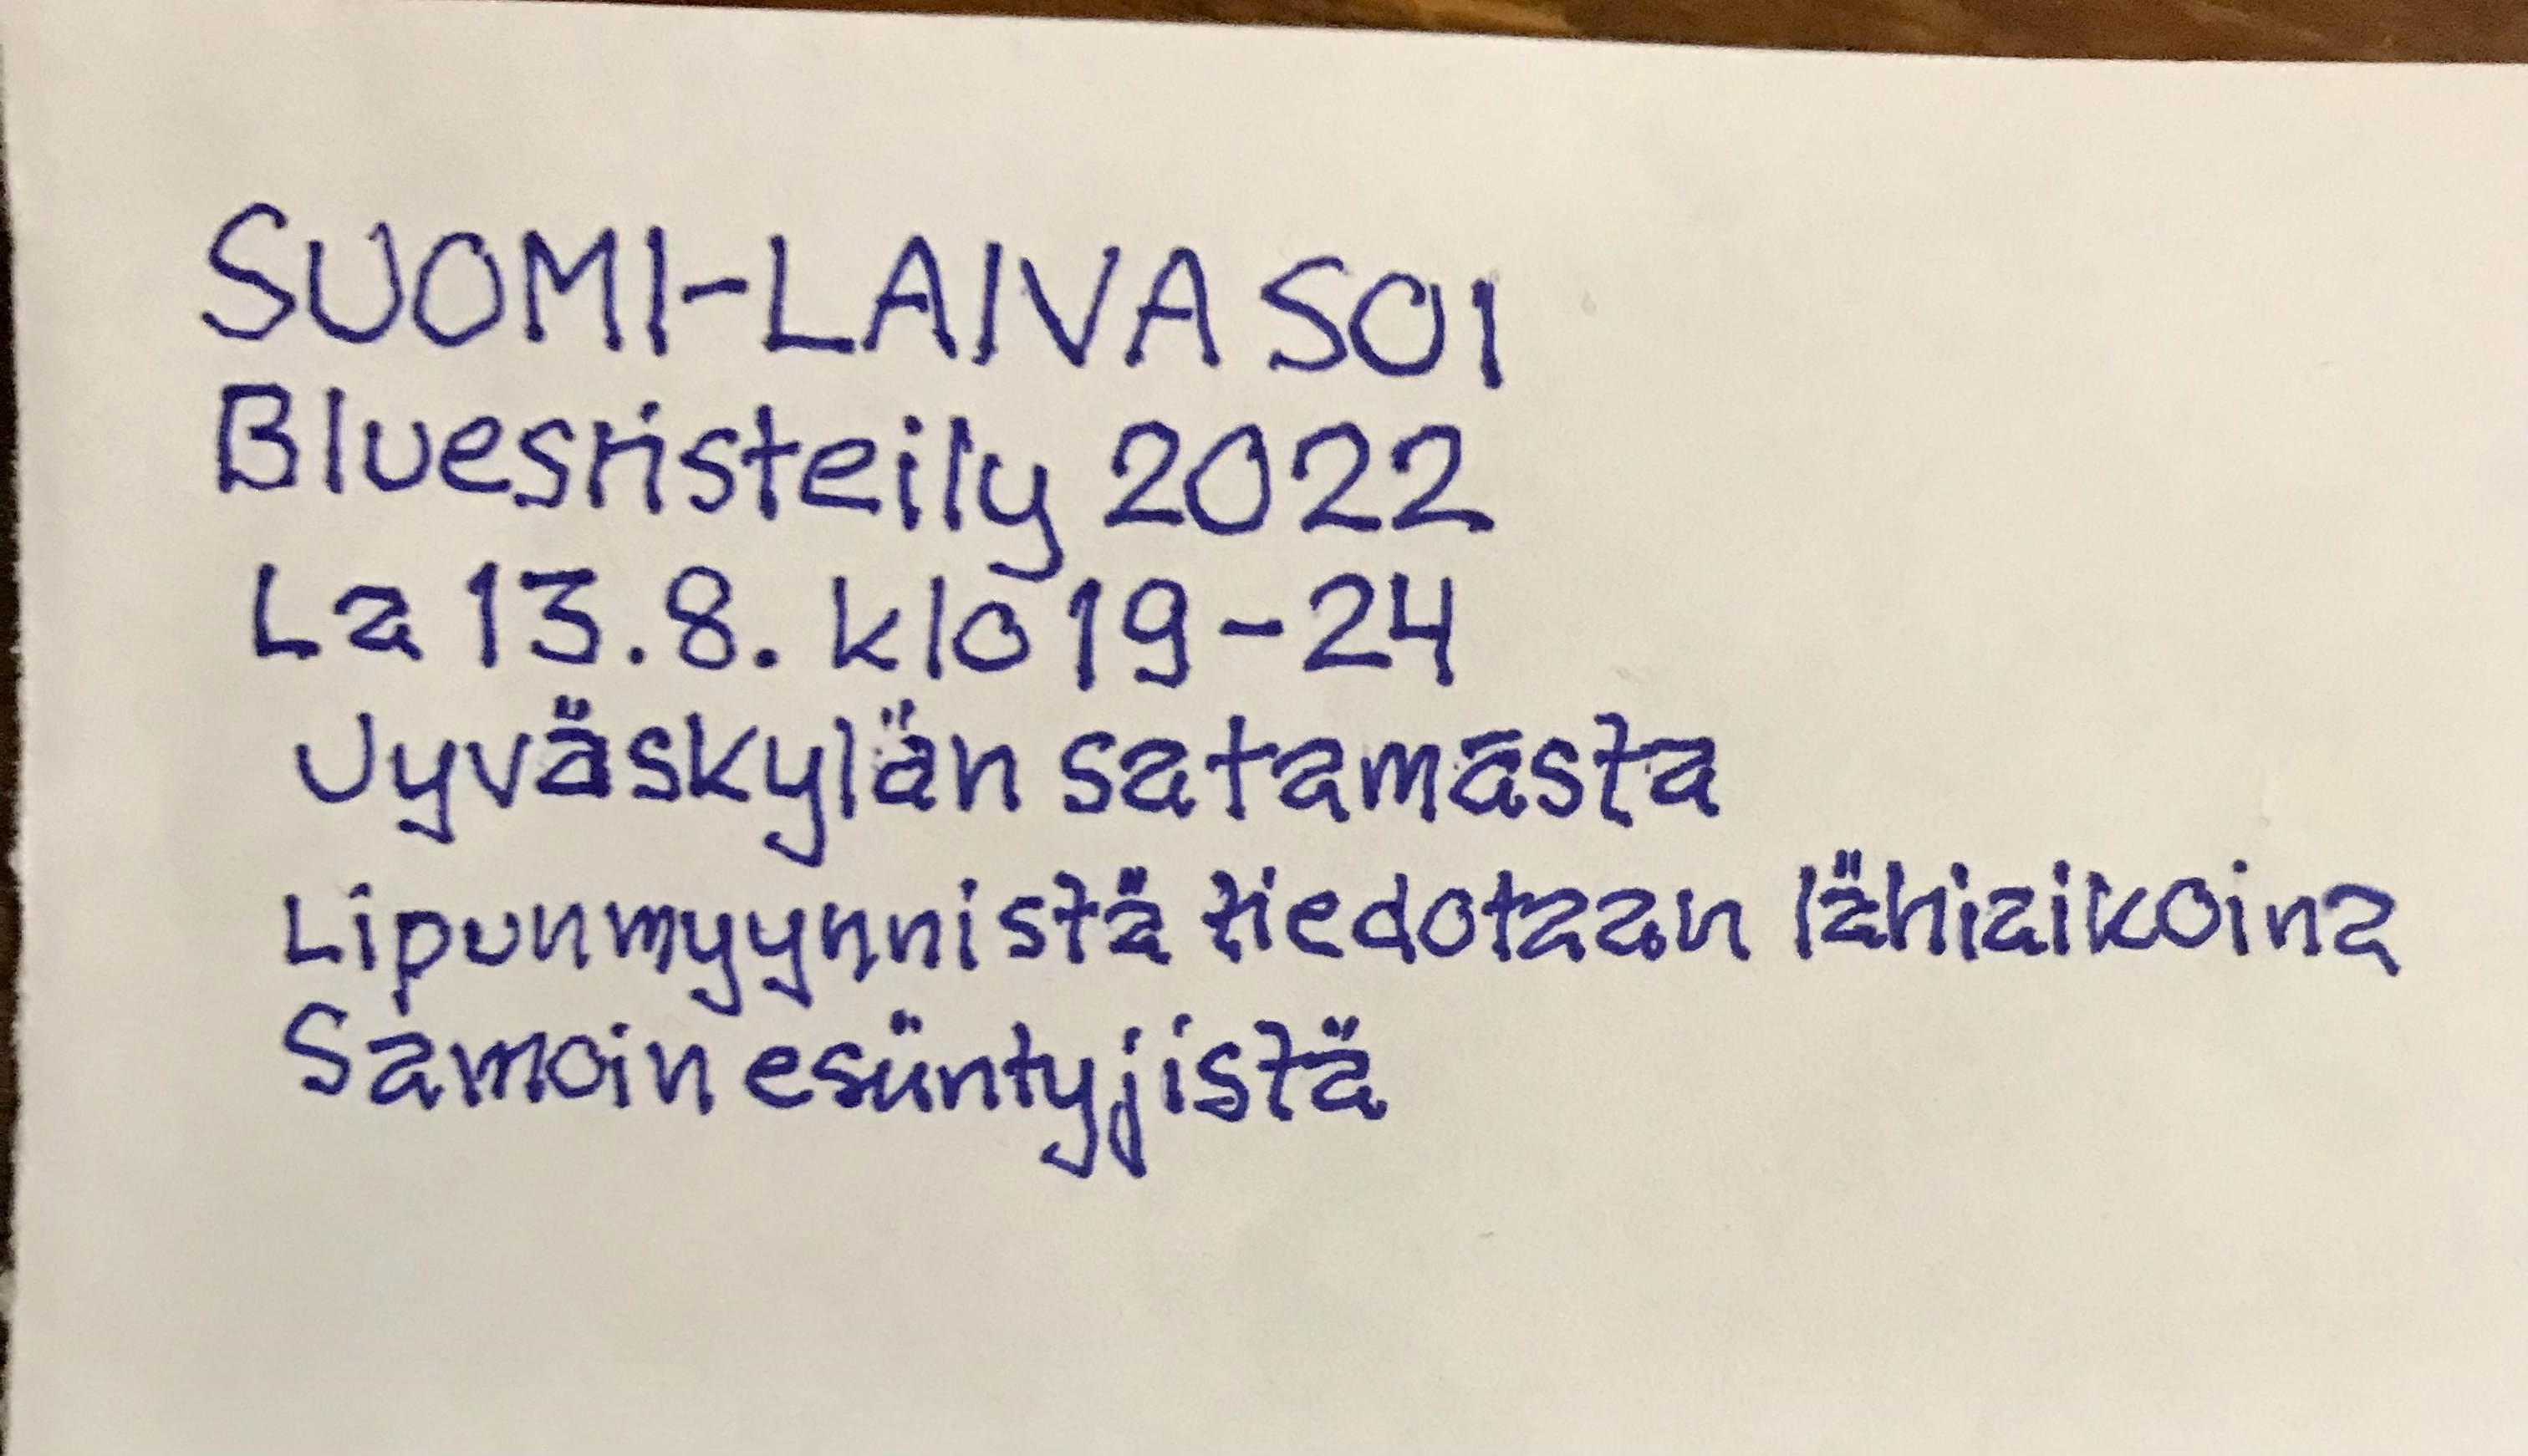 SUOMI-LAIVA SOI
Bluesristeily 2022
La 13.8. klo 19-24
Jyväskylän satamasta
Lipunmyynnistä tiedotaan lähiaikoina
Samoin esiintyjistä